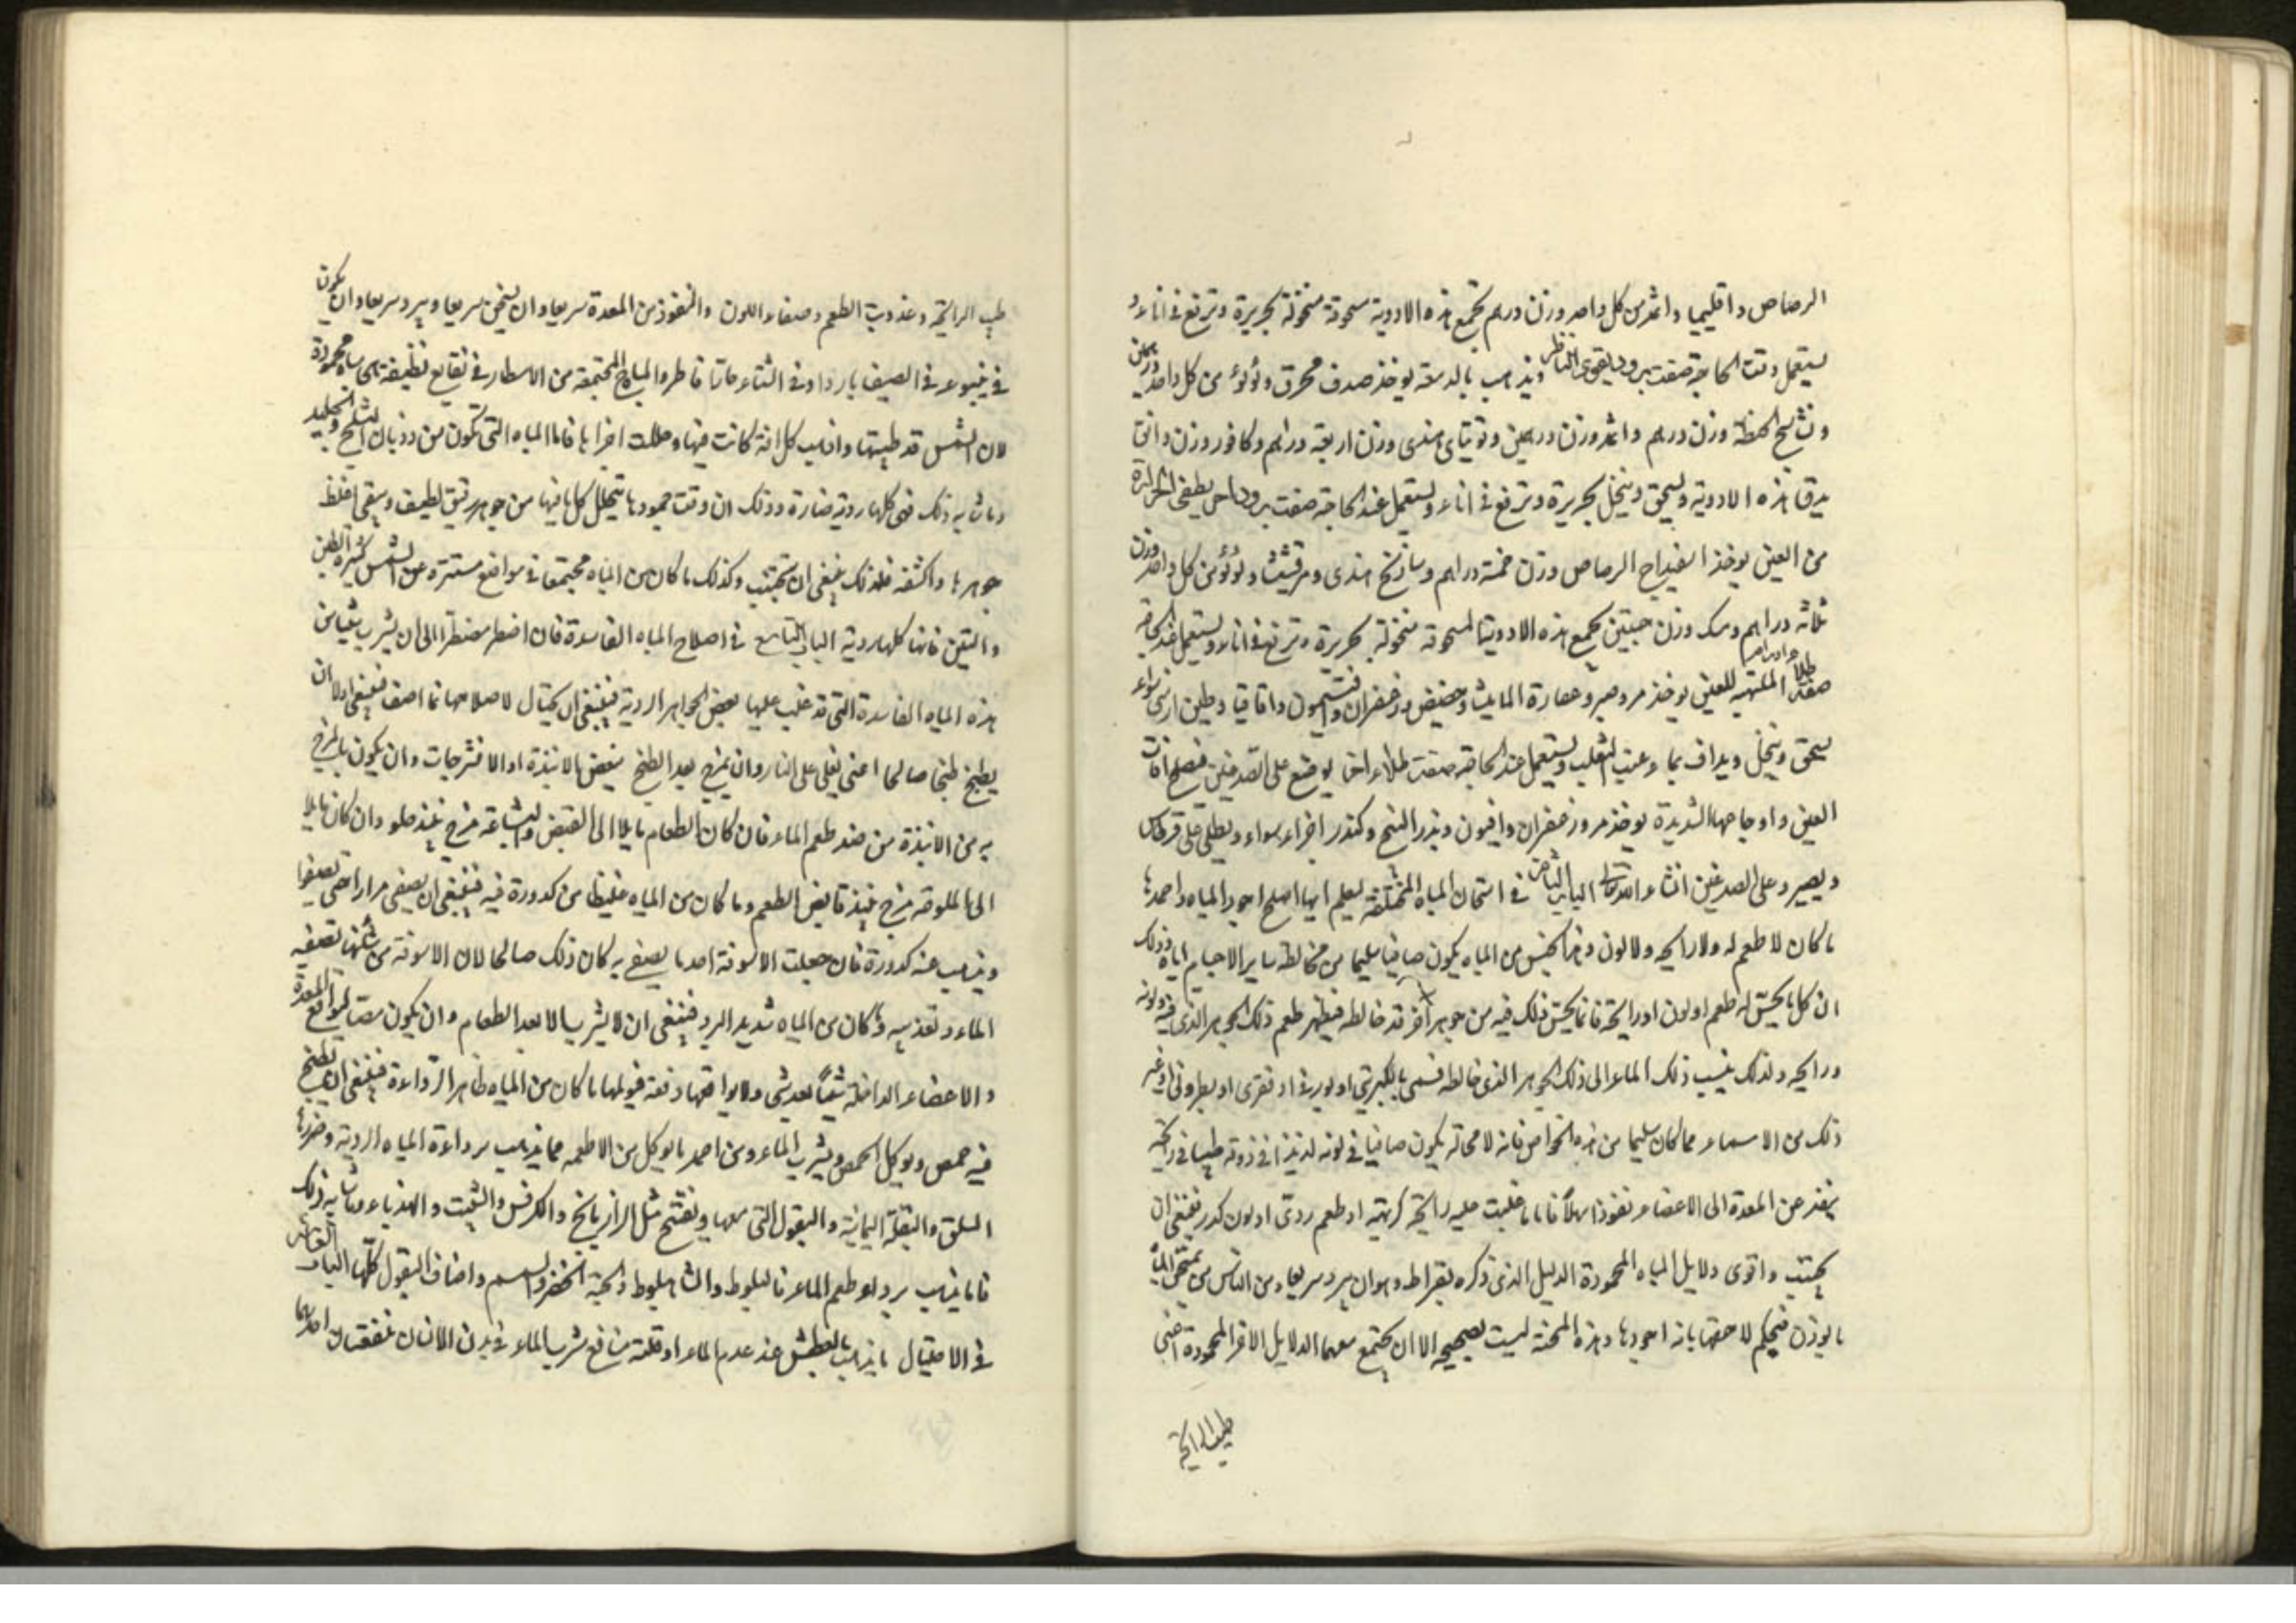 الرصاص واقليميا واثمد من كل واحد وزن درهم تجمع هذه الادوية مسحوقة منخولة بحريرة وترفع في اناء و
يستعمل وقت الحاجة صفت برود يقوى الناظر ويذهب بالدمعة يوخذ صدف محرق ولؤلؤ من كل واحد درهمين
ونشاستج الحنطة وزن درهم واثمد وزن درهمين وتوتياى هندى وزن اربعة دراهم وكافور وزن دانق
يدق هذه الادوية ويسحق وينخل بحريرة وترفع في اناء ويستعمل عند الحاجة صفت برود اخر يطفى الحرارة
من العين يوخذ اسفيداج الرصاص وزن خمسة دراهم وساذج هندى ومرقشيثا ولؤلؤ من كل واحد وزن
ثلاثة دراهم ومسك وزن حبتين تجمع هذه الادوية المسحوقة منخولة بحريرة وترفع في اناء ويستعمل عند الحاجة
صفة طلا الملتهبة للعين يوخذ مر وصبر وعصارة الماميثا وحضض وزعفران وافيون واقاقيا وطين ارمنى سواء
يسحق وينخل ويداف بماء وعنب الثعلب ويستعمل عند الحاجة صفت طلاء اخر يوضع على الصدغين فيصلح افات
العين واوجاعها الشديدة يوخذ مر وزعفران وافيون وبزر البنج وكندر اجزاء سواء ويطلى على قرطاس
ويصير على الصدغين انشاء الله تعالى الباب الثامن في امتحان المياه المختلفة ليعلم ايها اصلح اجود المياه واحمدها
ما كان لا طعم له ولا رايحه ولا لون وهذا الجنس من المياه يكون صافيا سليما من مخالطه ساير الاجسام اياه وذلك
ان كل ما يحس له طعم او لون او رايحة فانما يحس ذلك فيه من جوهر اخر قد خالطه فيظهر طعم ذلك الجوهر الذى فيه ولونه
ورايحه ولذلك ينسب ذلك الماء الى ذلك الجوهر الذى خالطه فسمى بالكبريتى او بورقى او نفرى او بطرونى او غير
ذلك من الاسماء فما كان سليما من هذه الخواص فانه لا محالة يكون صافيا في لونه لذيذا في ذوقه طيبا في رايحته
ينفذ عن المعدة الى الاعضاء نفوذا سهلا فاما ما غلبت عليه رايحة كريهة او طعم ردى او لون كدر فينبغى ان
يجتنب واقوى دلايل المياه المحمودة الدليل الذى ذكره بقراط وهو ان يبرد سريعا ومن الناس من يمتحن الماء
بالوزن فيحكم لاخفها بانه اجودها وهذه المحنة ليست بصحيحه الا ان يجتمع معها الدلايل الاخر المحمودة اعنى
طيب الرايحة
طيب الرايحة وعذوبة الطعم وصفاء اللون والنفوذ من المعدة سريعا وان يسخن سريعا ويبرد سريعا وان يكون
في ينبوعه في الصيف باردا وفي الشتاء حارا فاطر والمياه المجتمعة من الامطار في نقايع نظيفة هى مياه محمودة
لان الشمس قد طيبتها واذهب كل افة كانت فيها وحللت اجزاها فاما المياه التى تكون من ذوبان الثلج والجليد
وما شابه ذلك فهى كلها ردية ضارة وذلك ان وقت جمودها يتحلل كل ما فيها من جوهر رقيق لطيف ويبقى اغلظ
جوهرها واكثفه فلذلك ينبغى ان تجتنب وكذلك ما كان من المياه مجتمعا في مواضع مستترة عن الشمس كثيرة الطين
والتبن فانها كلها ردية الباب التاسع في اصلاح المياه الفاسدة فان اضطر مضطر الى ان يشرب شيا من
هذه المياه الفاسدة التى قد غلب عليها بعض الجواهر الردية فينبغى ان يحتال لاصلاحها بما اصف فينبغى اولا ان
يطبخ طبخا صالحا اعنى يغلى على النار وان يمزج بعد الطبخ ببعض الانبذة او الافشرجات وان يكون ما يمزج
به من الانبذة من ضد طعم الماء فان كان الطعام مايلا الى القبض والبشاعة مزج بنبيذ حلو وان كان مايلا
الى الملوحة مزج بنبيذ قابض الطعم وما كان من المياه غليظا من كدورة فيه فينبغى ان يصفى مرارا حتى يصفوا
ويذهب عنه كدورة فان جعلت الاسوقة احد ما يصفى به كان ذلك صالحا لان الاسوقة من شانها تصفيه
الماء وتعذيبه وما كان من المياه شديد البرد فينبغى ان لا يشرب الا بعد الطعام وان يكون مصا لتوافق المعدة
والاعضاء الداخلة شيئا بعد شى ولا يوافقها دفعة فيولمها ما كان من المياه ظاهر الرداءة فينبغى ان يطبخ
فيه حمص ويوكل الحمص ويشرب الماء ومن احمد ما يوكل من الاطعمه مما يذهب برداءة المياه الردية وضررها
السلق والبقلة اليمانية والبقول التى تلهب وتفتح مثل الرازيانج والكرفس والشبت والهندباء وما شابه ذلك
فاما يذهب برد و طعم الماء فالبلوط والشاهبلوط والحبة الخضرا والسمسم واصناف البقول كلها الباب العاشر
في الاحتيال ما يذهب بالعطش عند عدم الماء او قلته منافع شرب الماء في بدن الانسان منفعتان احدهما